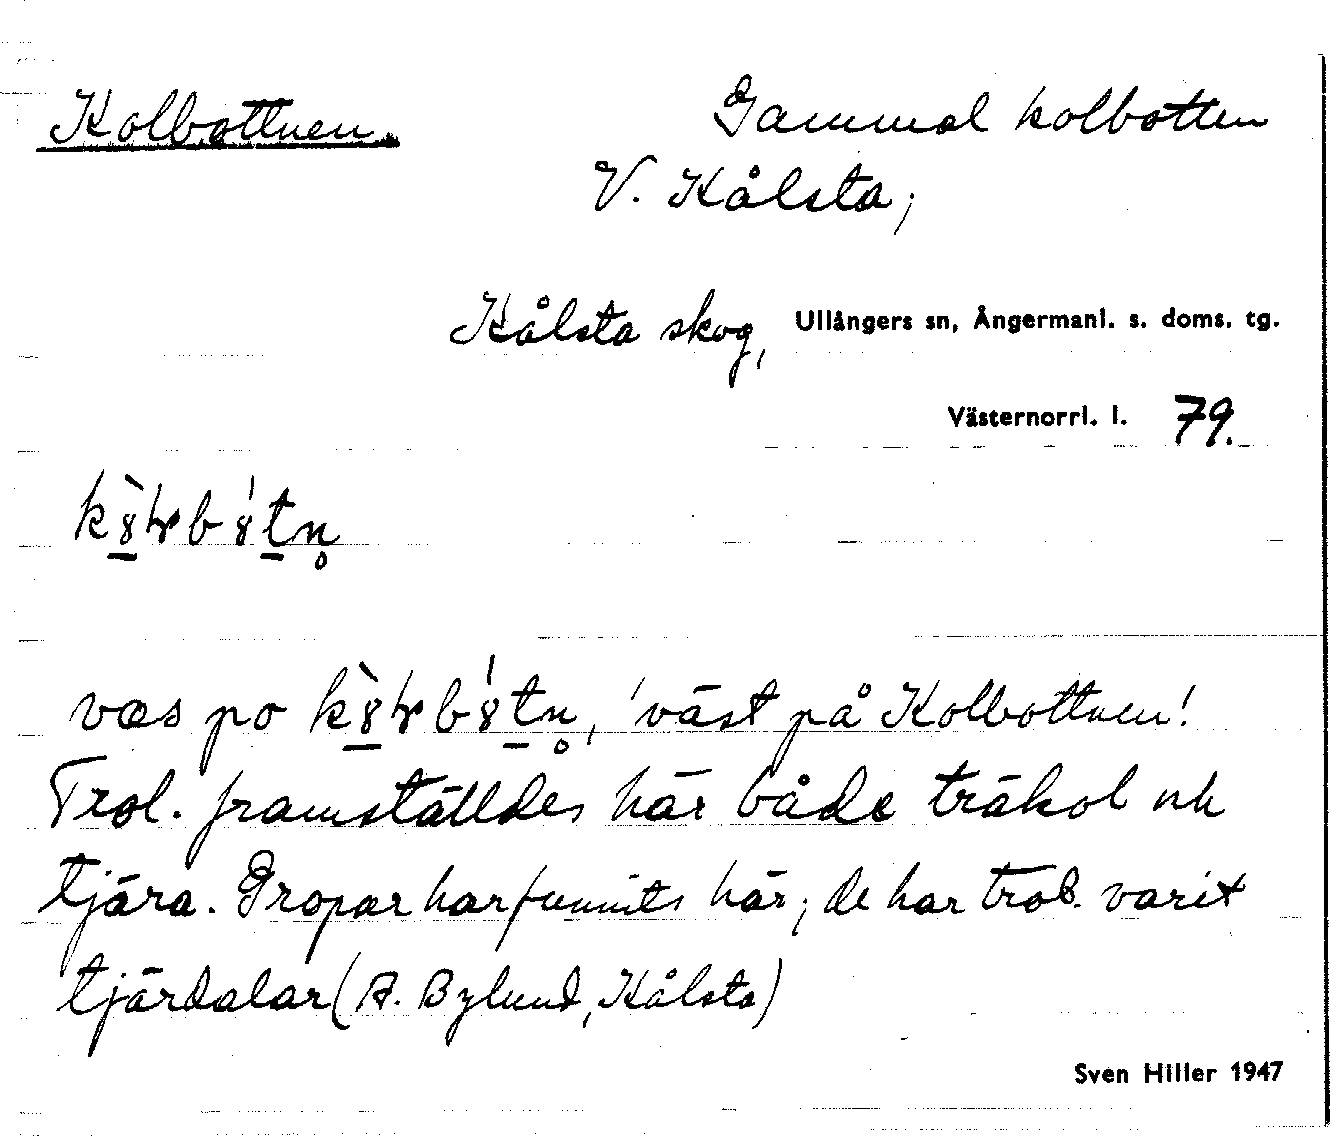 Kolbottnen.
Gammal kolbotten
V. Kålsta;
Kålsta skog, Ullångers sn, Ångermanl. s. doms. tg.
Västernorrl. l. 79.
væs po
'väst på Kolbottnen'.
Trol. framställdes här både träkol och
tjära. Gropar har funnits här; de har trol. varit
tjärdalar (A. Bylund, Kålsta)
Sven Hiller 1947